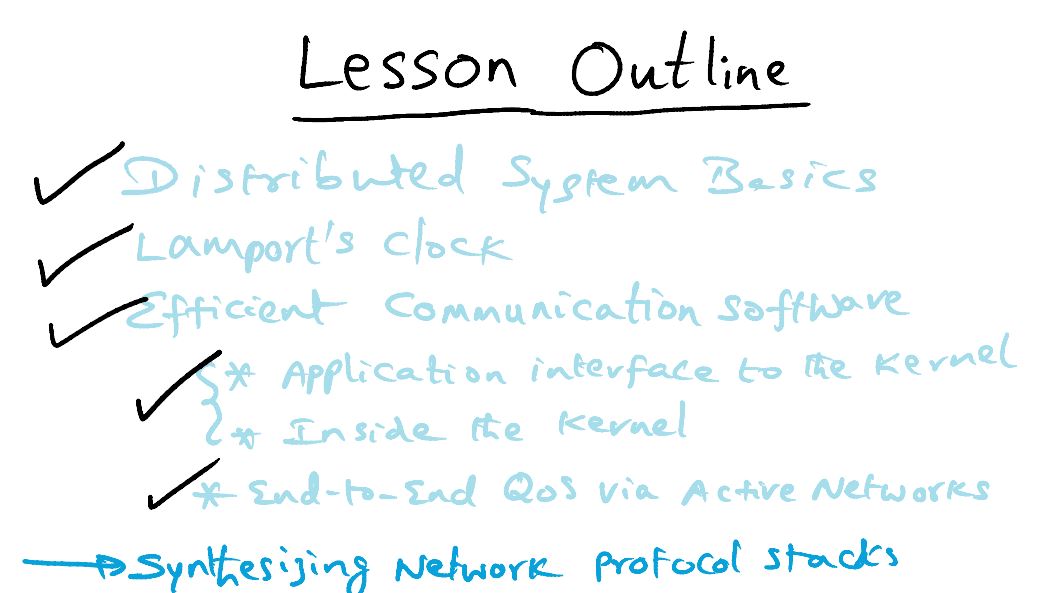 Lesson Outline
Distributed System Basics
Lamport's Clock
Efficient Communication software
* Application interface to the Kernel
* Inside the Kernel
* End-to-End QoS via Active Networks
Synthesizing Network Protocol stacks